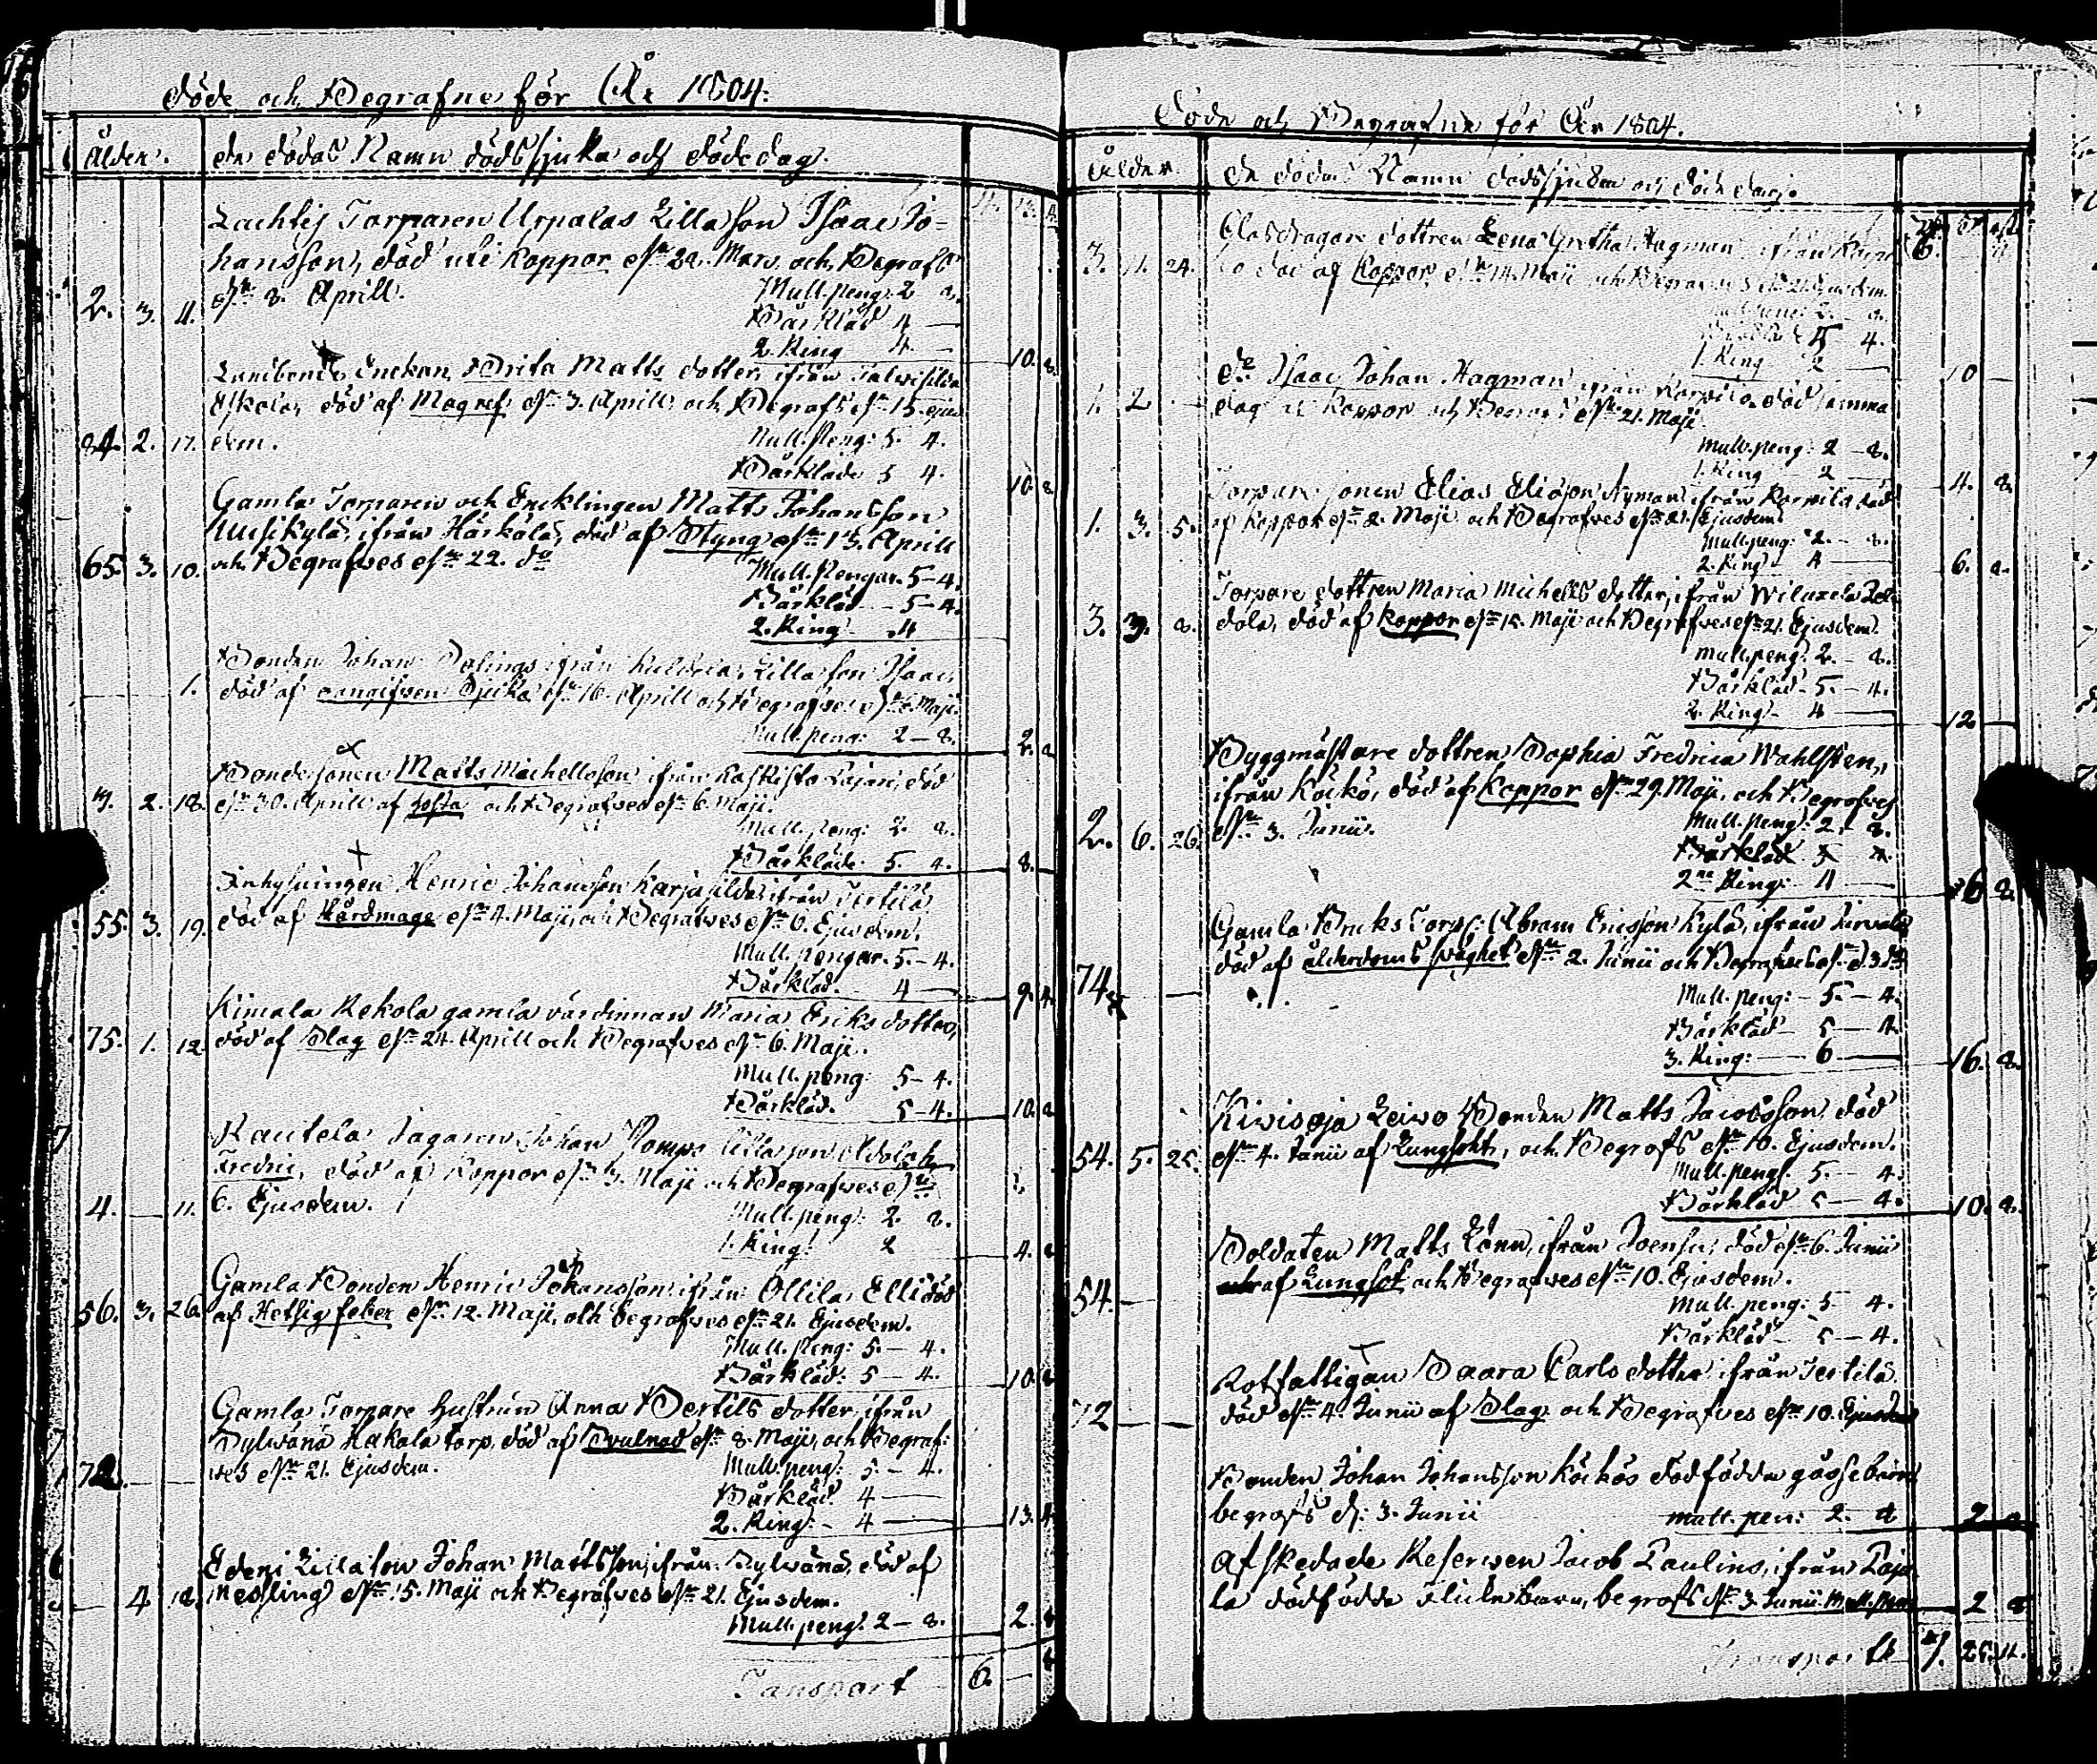 Döde och Begrafne för År 1804.
Ålder. de dödas Namn dödssjuka och dödedag.
Lachtis Torparen Urpalas Lilla son Isaac Jo-
hansson, död uti koppor d. 22. Mars och Begrofs
2. 3. 11. d. 8. Aprill. Mull. peng: 2 8.
Bårkläd 4 —
2. Ring 4. — 10. 8.
Enckan Brita Matts dotter ifrån
Eskola, död af Magref d. 3. Aprill och Begrofs d. 15. ejus
84. 2. 17. dem. Mull. Peng: 5. 4.
Bårkläde 5 4. 10. 8.
Gamla Torparen och Encklingen Matts Johansson
Uusikylä, ifrån Härkälä, död af Styng d. 13. Aprill
65. 3. 10. och Begrafves d. 22. do
Mull. Pengar. 5-4.
Bårkläd — 5-4.
2. Ring — 4
Bonden Johan ifrån Lilla son Isaac,
1. död af oangifven Sjuka d. 16. Aprill och Begrafves d. 6. Maji.
Mull. peng: 2-8. 2. 8
Bondesonen Matts Michellsson ifrån död
2. 18. d. 30. Aprill af hosta och Begrafves d. 6. Maji.
Mull. Peng: 2. 8.
Bårkläde: 5. 4. 8.
Inhysningen Henric Johansson ifrån Tertilä
55. 3. 19. död af Hårdmage d. 4. Maji, och Begrafves d. 6. Ejusdem.
Mull. pengar. 5.-4.
Bårkläd. 4 — 9. 4.
Kiimala Rekola gamla värdinnan Maria Eriks dotter,
75. 1. 12. död af Slag d. 24. Aprill och Begrafves d. 6. Maji.
Mull. peng: 5-4.
Bårkläd. 5-4. 10. 8
Kautela Jägaren Johan Pomps lilla son Adolph
Fredric, död af Koppor d. 3. Maji och Begrafves d.
4. — 11. 6. Ejusdem.
Mull. peng: 2. 8.
1. Ring: 2 4. 8
Gamla Bonden Henric Johansson ifrån Ollila Elli död
56. 3. 26. af Hetsig feber d. 12. Maji, och begrafves d. 21. Ejusdem.
Mull. Peng: 5.-4.
Bårkläd: 5-4. 10. 8
Gamla Torpare hustrun Anna Bertils dotter ifrån
Sylvänä Hakala torp, död af Svulnad d. 8. Maji, och Begraf-
72. — ves d. 21. Ejusdem. Mull. peng: 5.-4.
Bårkläd. 4 —
2. Ring: 4 — 13. 4
Lilla son Johan Mattsson, ifrån Sylvänä, död af
— 4. 18. Messling d. 15. Maji och Begrafves d. 21. Ejusdem.
Mull. peng: 2-8. 2. 8
Transport 6. —
Döde och Begrafne för År 1804.
Ålder. de dödas Namn dödssjuka och döde dag.
dottren Lena Gretha Hagman ifrån
3. 11. 24. död af Koppor, d. 14. Maji och Begrafves d. 21. Ejusdem.
2.-8.
5 4.
1. Ring 2 10 —
do Isaac Johan Hagman ifrån död samma
1. 2 — dag af Koppor och Begrofs d. 21. Maji
Mull. peng: 2-8.
1. Ring 2 — 4. 8
Torpare sonen Elias Eliæson Nyman ifrån död
1. 3. 5. af Koppor d. 2. Maji och Begrafves d. 21. Ejusdem.
Mull. peng: 2.-8.
2. Ring 4 — 6. 8.
Torpare dottren Maria Michells dotter, ifrån
3. 3. 8. död af Koppor d. 15. Maji och Begrafves d. 21. Ejusdem.
Mull. peng: 2.-8.
Bårkläd. 5.-4.
2. Ring 4 — 12 —
Byggmästare dottren Sophia Fredrica Wahlsten,
ifrån Köckö, död af Koppor d. 29. Maji, och Begrafves
2. 6. 26. d. 3. Junii. Mull. peng: 2.-8.
Bårkläd 5 4.
2ne Ring: 4 — 6 8.
Gamla Bruks Torp: Abram Ericsson Kylä, ifrån
74. — död af ålderdoms svaghet d. 2. Junii och Begrafves d. 3. do
Mull. peng: 5.-4.
Bårkläd — 5-4.
3. Ring: 6 — 16. 8.
Kivisoja Leivo Bonden Matts Jacobsson, död
54. 5. 25. d. 4. Junii af Lungsot, och Begrofs d. 10. Ejusdem.
Mull. peng: 5. 4.
Bårkläd 5-4. 10. 8.
Soldaten Matts Lönn, ifrån Joensu, död d. 6. Junii
54. — af Lungsot och Begrafves d. 10. Ejusdem.
Mull. peng: 5. 4.
Bårkläd 5-4.
Rotfattigan Saara Carls dotter ifrån Tertilä
72 — — död d. 4. Junii af Slag och Begrafves d. 10. Ejusdem
Bonden Johan Johansson Köckös dödfödda gossebarn
begrofs d: 3. Junii mull. pen: 2. 8 2 8
Afskedade Reserven Jacob Paulins, ifrån
la dödfödde Flicke barn, begrofs d. 3. Junii. Mull. Pen 2 8
Transport 7. 11.